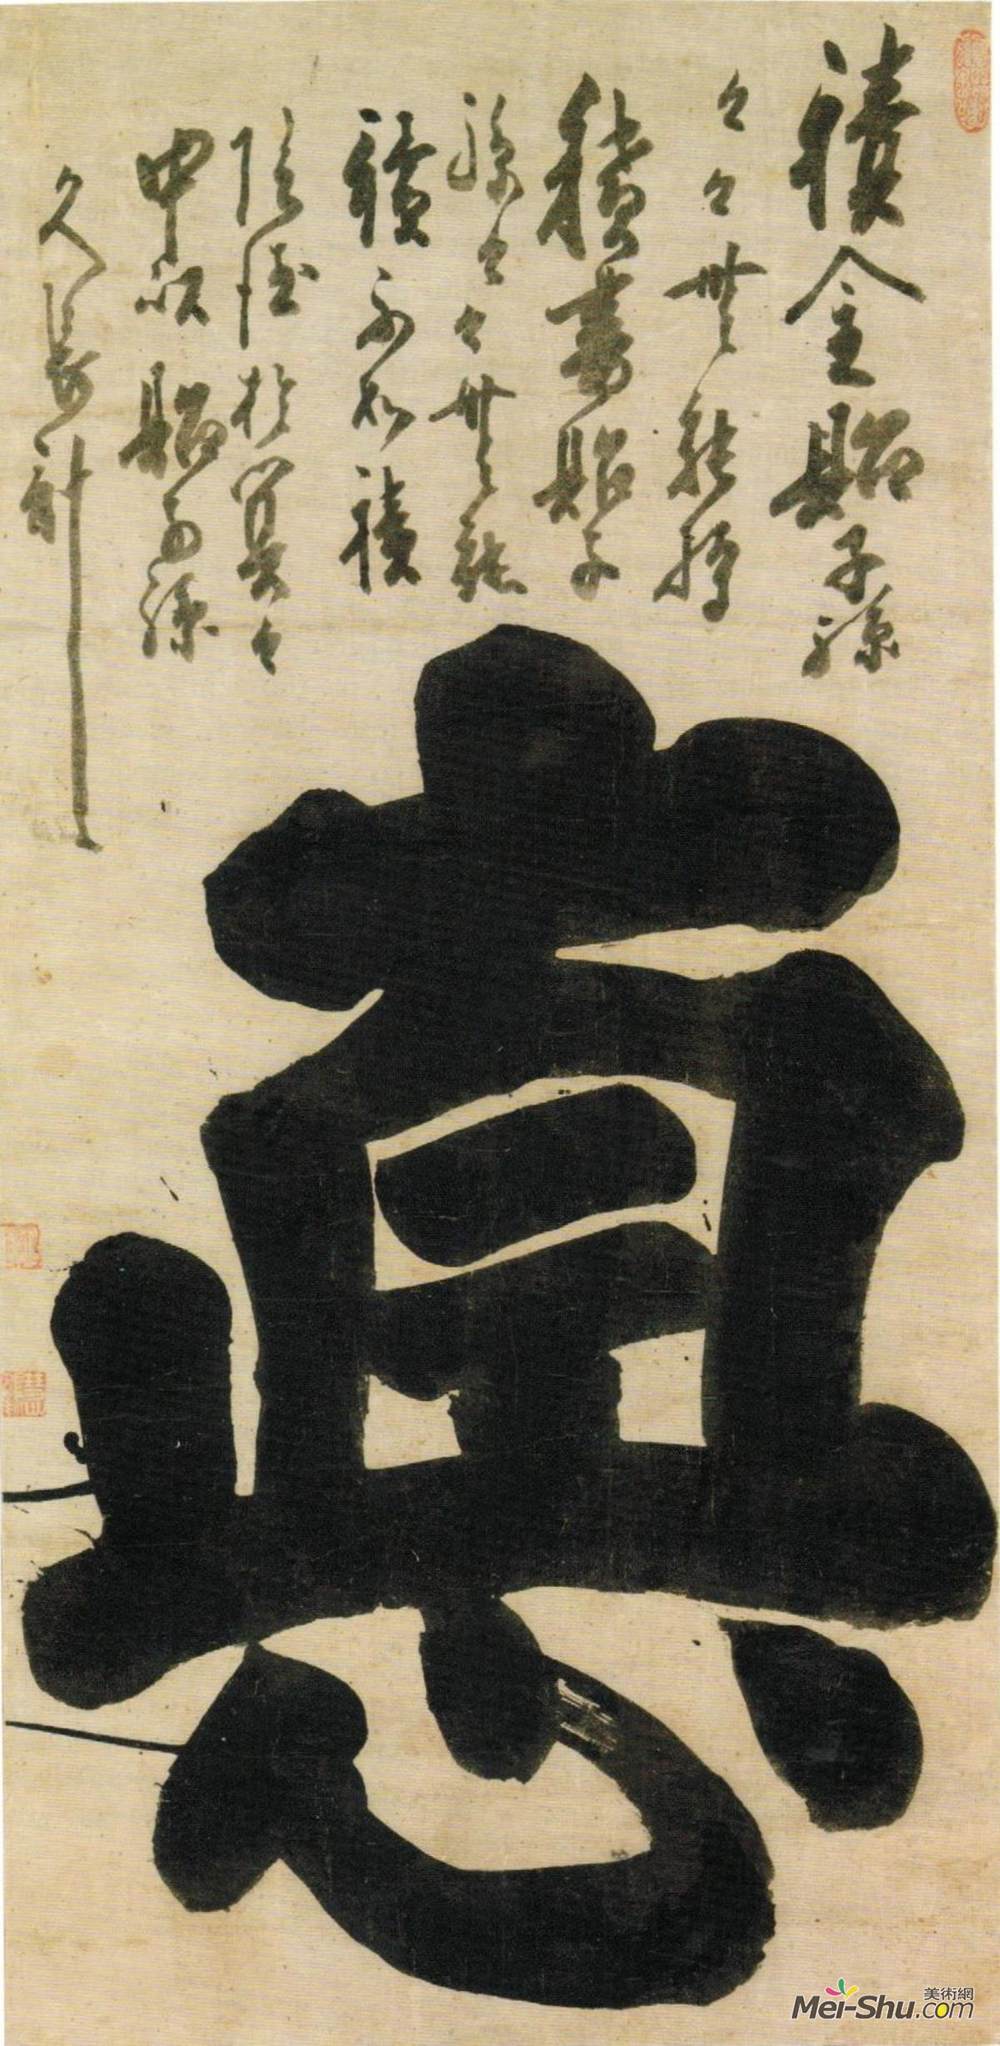 積金貽子孫
々々無能
積書貽子
孫々々無能
讀不如積
陰徳於冥々
中以貽子孫
久長計
悳
美術網
Mei-Shu.com